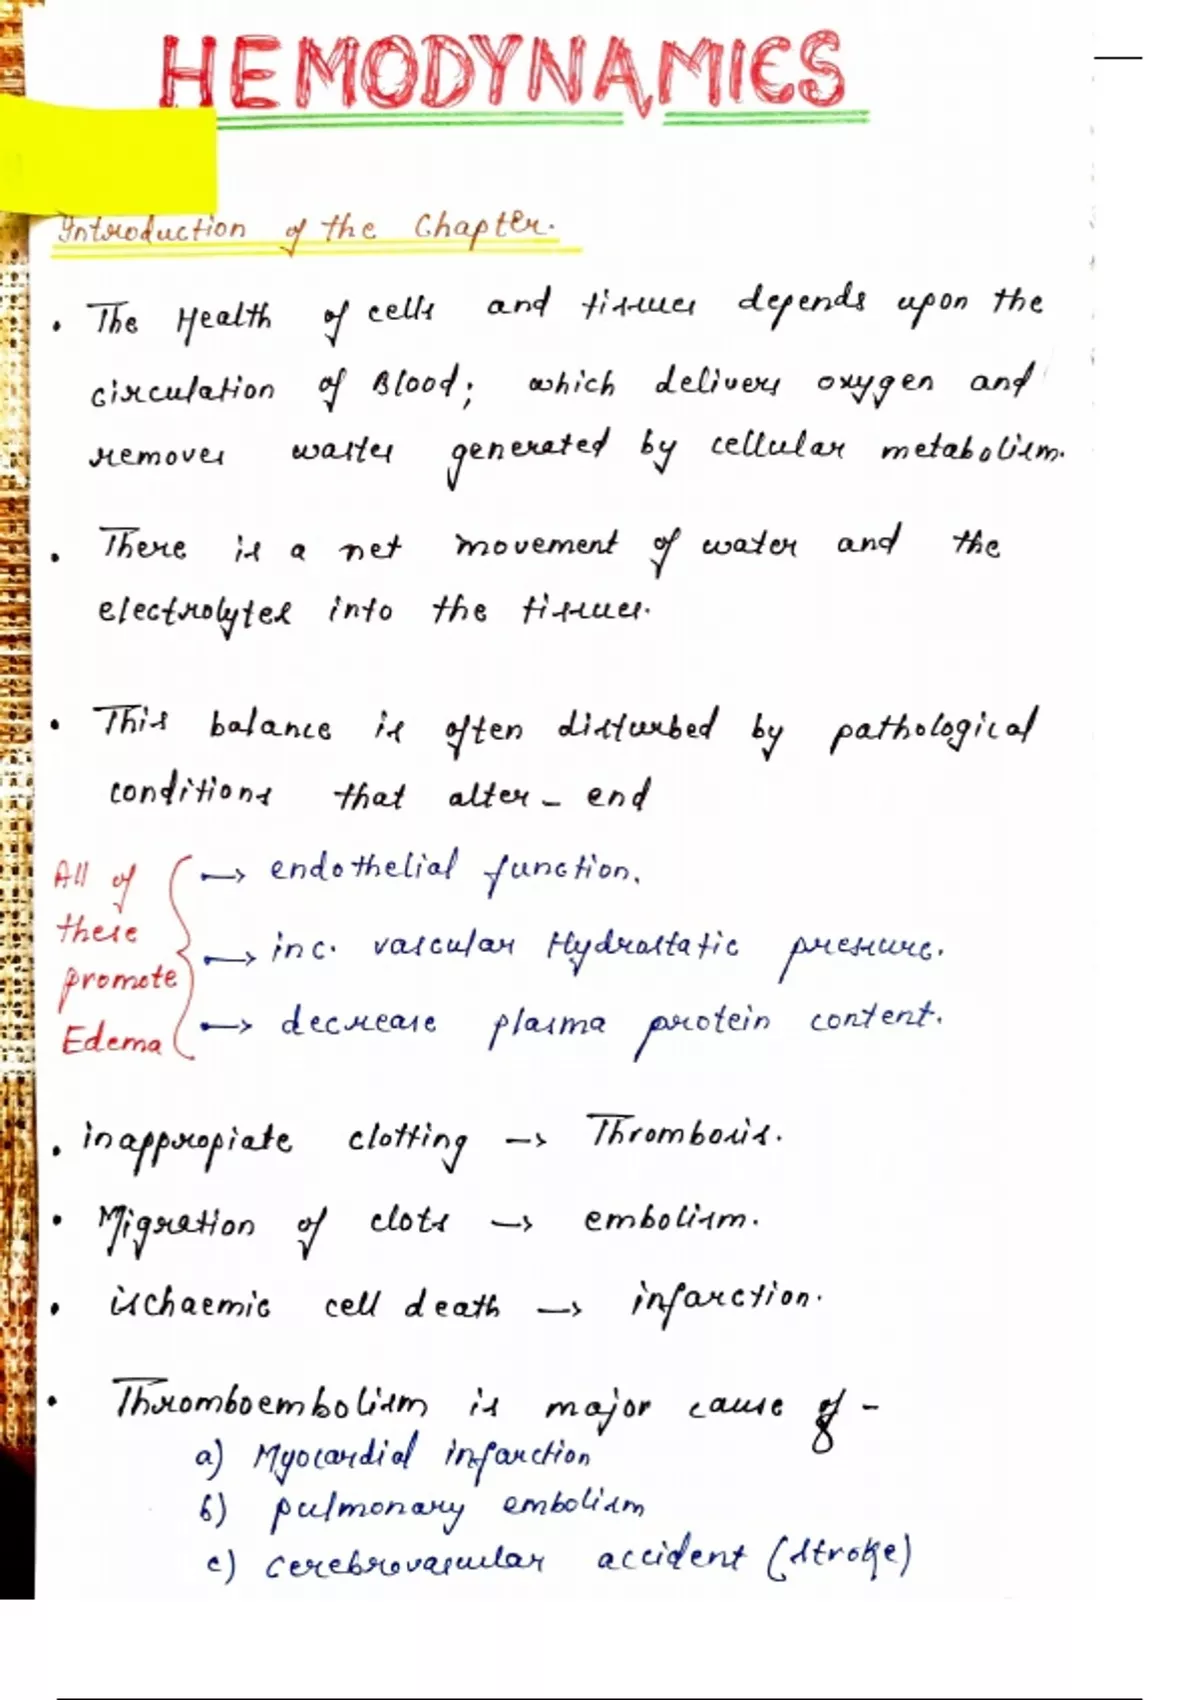 HEMODYNAMICS
Introduction of the Chapter.
• The Health of cells and tissues depends upon the
circulation of Blood; which delivers oxygen and
removes wastes generated by cellular metabolism.
• There is a net movement of water and the
electrolytes into the tissues.
• This balance is often disturbed by pathological
conditions that alter - end
All of these promote Edema
→ endothelial function.
→ inc. vascular Hydrostatic pressure.
→ decrease plasma protein content.
• inappropiate clotting → Thrombosis.
• Migration of clots → embolism.
• ischaemic cell death → infarction.
• Thromboembolism is major cause of -
a) Myocardial infarction
b) pulmonary embolism
c) cerebrovascular accident (stroke)